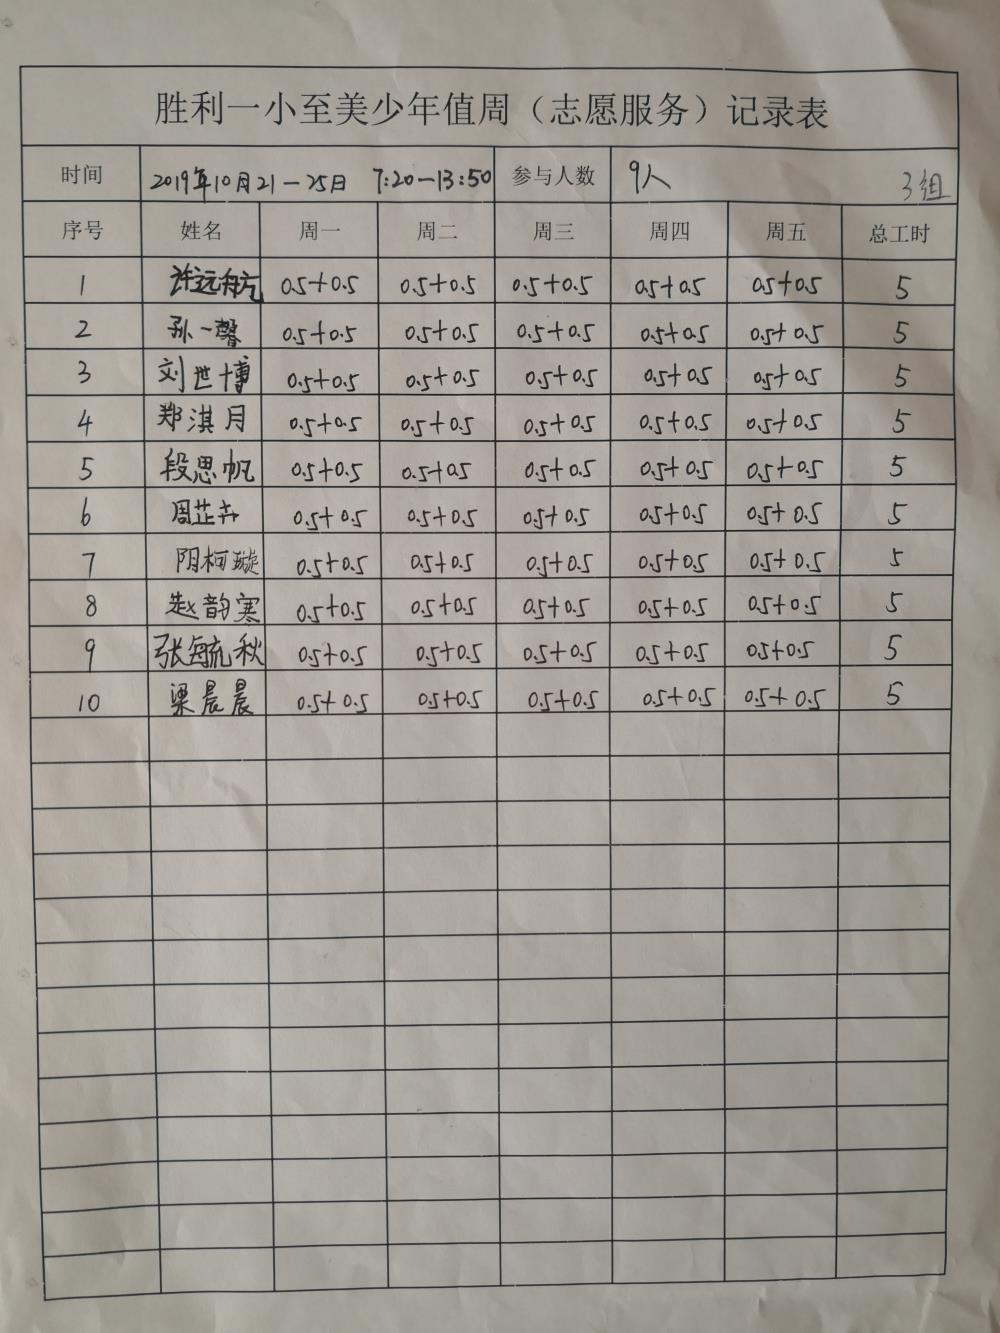 胜利一小至美少年值周（志愿服务）记录表
时间 2019年10月21—25日 7:20—13:50 参与人数 9人 3组
序号 姓名 周一 周二 周三 周四 周五 总工时
1 许远航 0.5+0.5 0.5+0.5 0.5+0.5 0.5+0.5 0.5+0.5 5
2 孙一馨 0.5+0.5 0.5+0.5 0.5+0.5 0.5+0.5 0.5+0.5 5
3 刘世博 0.5+0.5 0.5+0.5 0.5+0.5 0.5+0.5 0.5+0.5 5
4 郑淇月 0.5+0.5 0.5+0.5 0.5+0.5 0.5+0.5 0.5+0.5 5
5 段思帆 0.5+0.5 0.5+0.5 0.5+0.5 0.5+0.5 0.5+0.5 5
6 周芷卉 0.5+0.5 0.5+0.5 0.5+0.5 0.5+0.5 0.5+0.5 5
7 阴柯璇 0.5+0.5 0.5+0.5 0.5+0.5 0.5+0.5 0.5+0.5 5
8 赵韵寒 0.5+0.5 0.5+0.5 0.5+0.5 0.5+0.5 0.5+0.5 5
9 张毓秋 0.5+0.5 0.5+0.5 0.5+0.5 0.5+0.5 0.5+0.5 5
10 梁晨晨 0.5+0.5 0.5+0.5 0.5+0.5 0.5+0.5 0.5+0.5 5